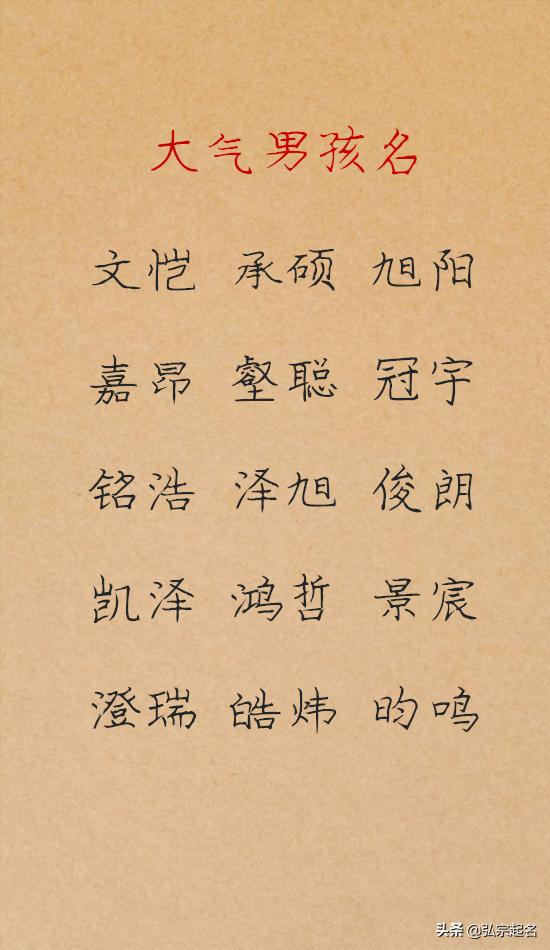 大气男孩名
文恺 承硕 旭阳
嘉昂 壑聪 冠宇
铭浩 泽旭 俊朗
凯泽 鸿哲 景宸
澄瑞 皓炜 昀鸣
头条 @弘宗起名